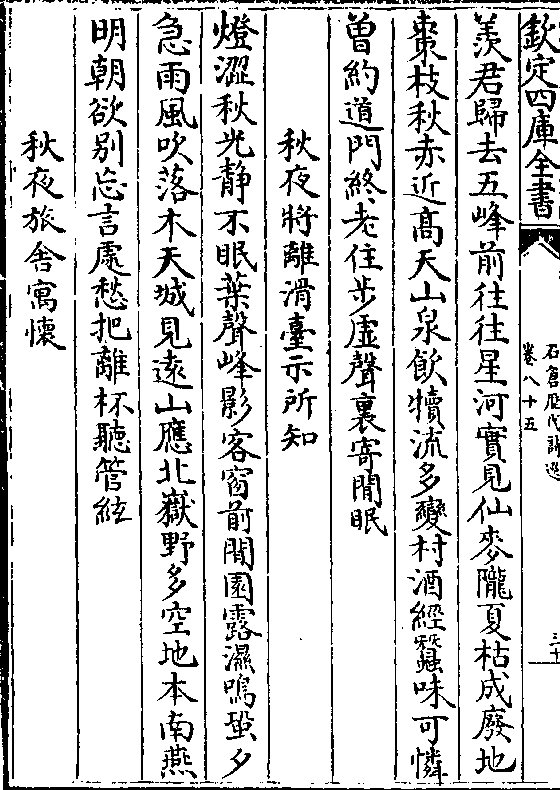 欽定四庫全書
石倉歷代詩選
卷八十五
三十
羨君歸去五峰前往往星河實見仙麥隴夏枯成廢地
棗枝秋赤近高天山泉飲犢流多變村酒經蠶味可憐
曾約道門終老住步虛聲裏寄閒眠
秋夜將離滑臺示所知
燈澀秋光靜不眠葉聲峰影客窗前閒園露濕鳴蛩夕
急雨風吹落木天城見遠山應北嶽野多空地本南燕
明朝欲别忘言處愁把離杯聽管絃
秋夜旅舍寓懷